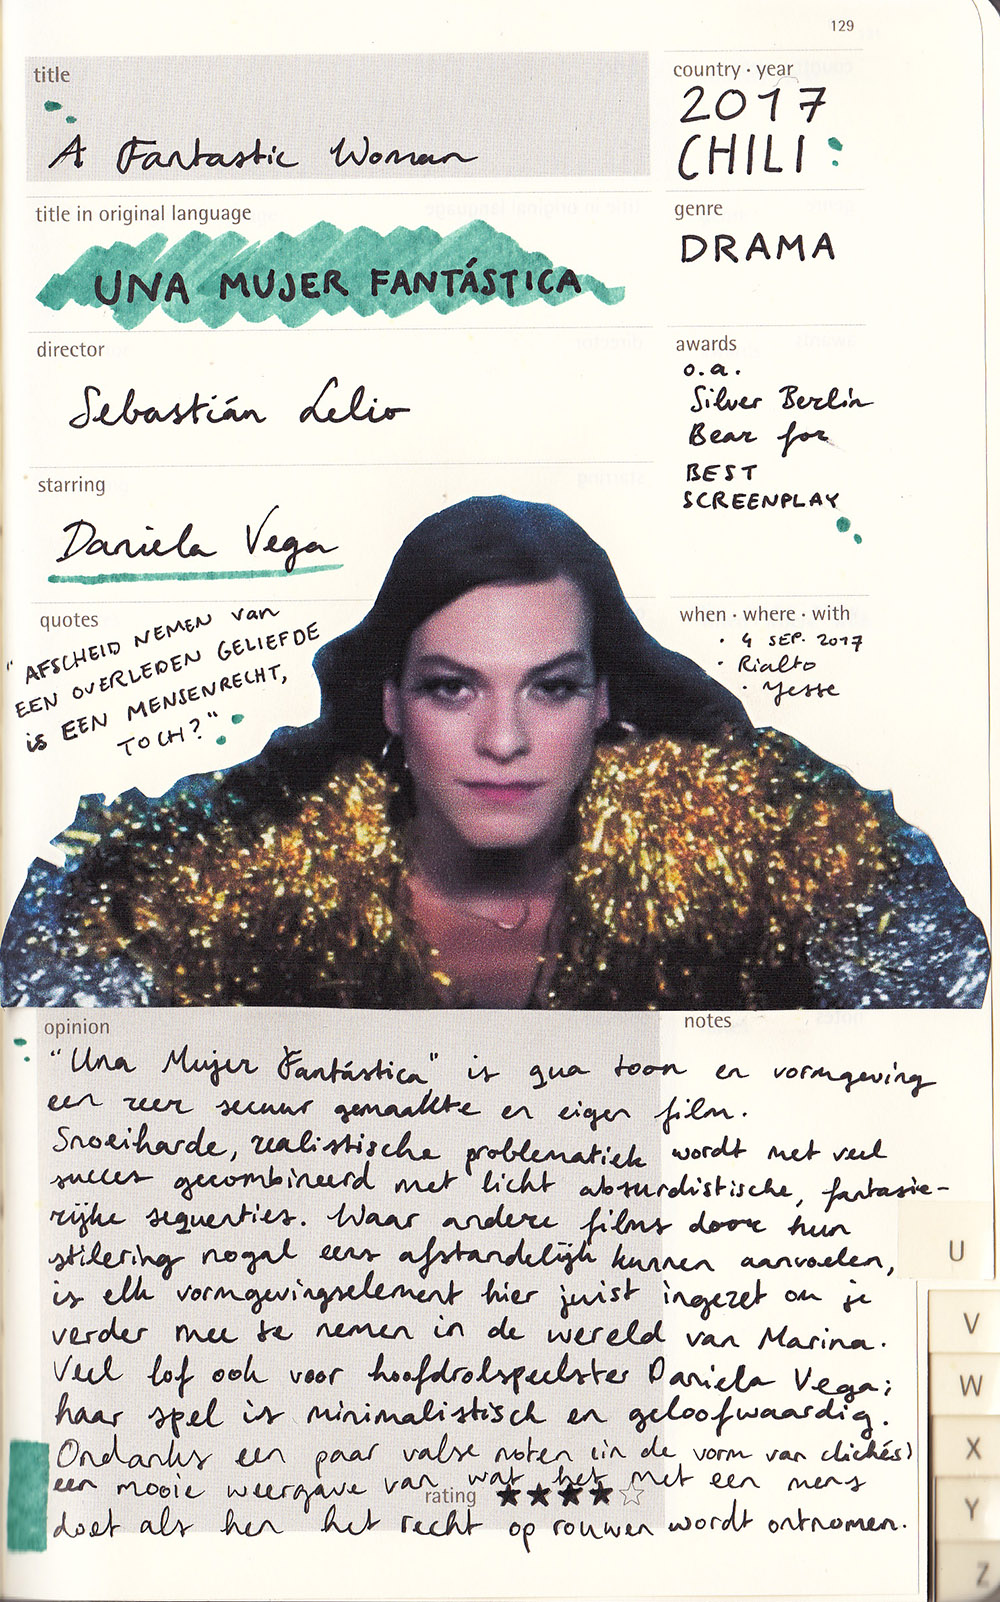 129
title
A Fantastic Woman
country · year
2017
CHILI
title in original language
UNA MUJER FANTÁSTICA
genre
DRAMA
director
Sebastián Lelio
awards
o.a.
Silver Berlin
Bear for
BEST
SCREENPLAY
starring
Daniela Vega
quotes
"AFSCHEID NEMEN van
EEN OVERLEDEN GELIEFDE
is EEN MENSENRECHT,
TOCH?"
when · where · with
· 4 SEP. 2017
· Rialto
· Yesse
opinion
notes
"Una Mujer Fantástica" is qua toon en vormgeving
een zeer secuur gemaakte en eigen film.
Snoeiharde, realistische problematiek wordt met veel
succes gecombineerd met licht absurdistische, fantasie-
rijke sequenties. Waar andere films door hun
stilering nogal eens afstandelijk kunnen aanvoelen,
is elk vormgevingselement hier juist ingezet om je
verder mee te nemen in de wereld van Marina.
Veel lof ook voor hoofdrolspeelster Daniela Vega;
haar spel is minimalistisch en geloofwaardig.
Ondanks een paar valse noten (in de vorm van clichés)
een mooie weergave van wat het met een mens
rating ★★★★☆
doet als hen het recht op rouwen wordt ontnomen.
U
V
W
X
Y
Z